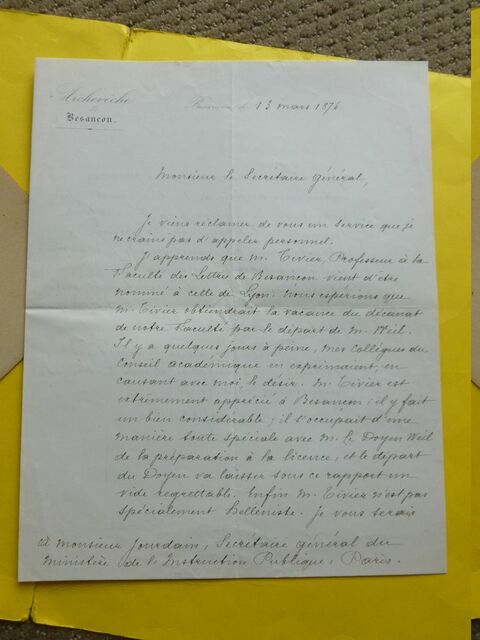 Archevêché
de
Besançon.
Besançon, le 13 mars 1876
Monsieur le Secrétaire Général,
Je viens réclamer de vous un service que je
ne crains pas d'appeler personnel.
J'apprends que M. Tivier, Professeur à la
Faculté des Lettres de Besançon vient d'être
nommé à celle de Lyon. Nous espérions que
M. Tivier obtiendrait la vacance du décanat
de notre Faculté par le départ de M. Weil.
Il y a quelques jours à peine, mes collègues du
Conseil académique en exprimaient, en
causant avec moi, le désir. M. Tivier est
extrêmement apprécié à Besançon; il y fait
un bien considérable; il s'occupait d'une
manière toute spéciale avec M. le Doyen Weil
de la préparation à la licence, et le départ
du Doyen va laisser sous ce rapport un
vide regrettable. Enfin M. Tivier n'est pas
spécialement Helléniste. Je vous serais
à Monsieur Jourdain, Secrétaire Général du
Ministère de l'Instruction Publique, Paris.